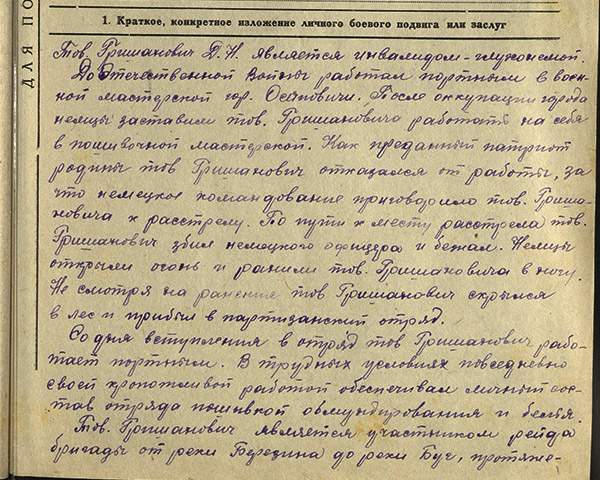 ДЛЯ ПО
1. Краткое, конкретное изложение личного боевого подвига или заслуг
Тов. Гришанович Д. Н. является инвалидом-глухонемой.
До Отечественной Войны работал портным в воен-
ной мастерской гор. Осиповичи. После оккупации города
немцы заставили тов. Гришановича работать на себя
в пошивочной мастерской. Как преданный патриот
родины тов Гришанович отказался от работы, за
что немецкое командование приговорило тов. Гриша-
новича к расстрелу. По пути к месту расстрела тов.
Гришанович збил немецкого офицера и бежал. Немцы
открыли огонь и ранили тов. Гришановича в ногу.
Не смотря на ранение тов Гришанович скрылся
в лес и прибыл в партизанский отряд.
Со дня вступления в отряд тов Гришанович рабо-
тает портным. В трудных условиях повседневно
своей кропотливой работой обеспечивал личный сос-
тав отряда пошивкой обмундирования и белья.
Тов. Гришанович является участником рейда
бригады от реки Березина до реки Буг, протяже-